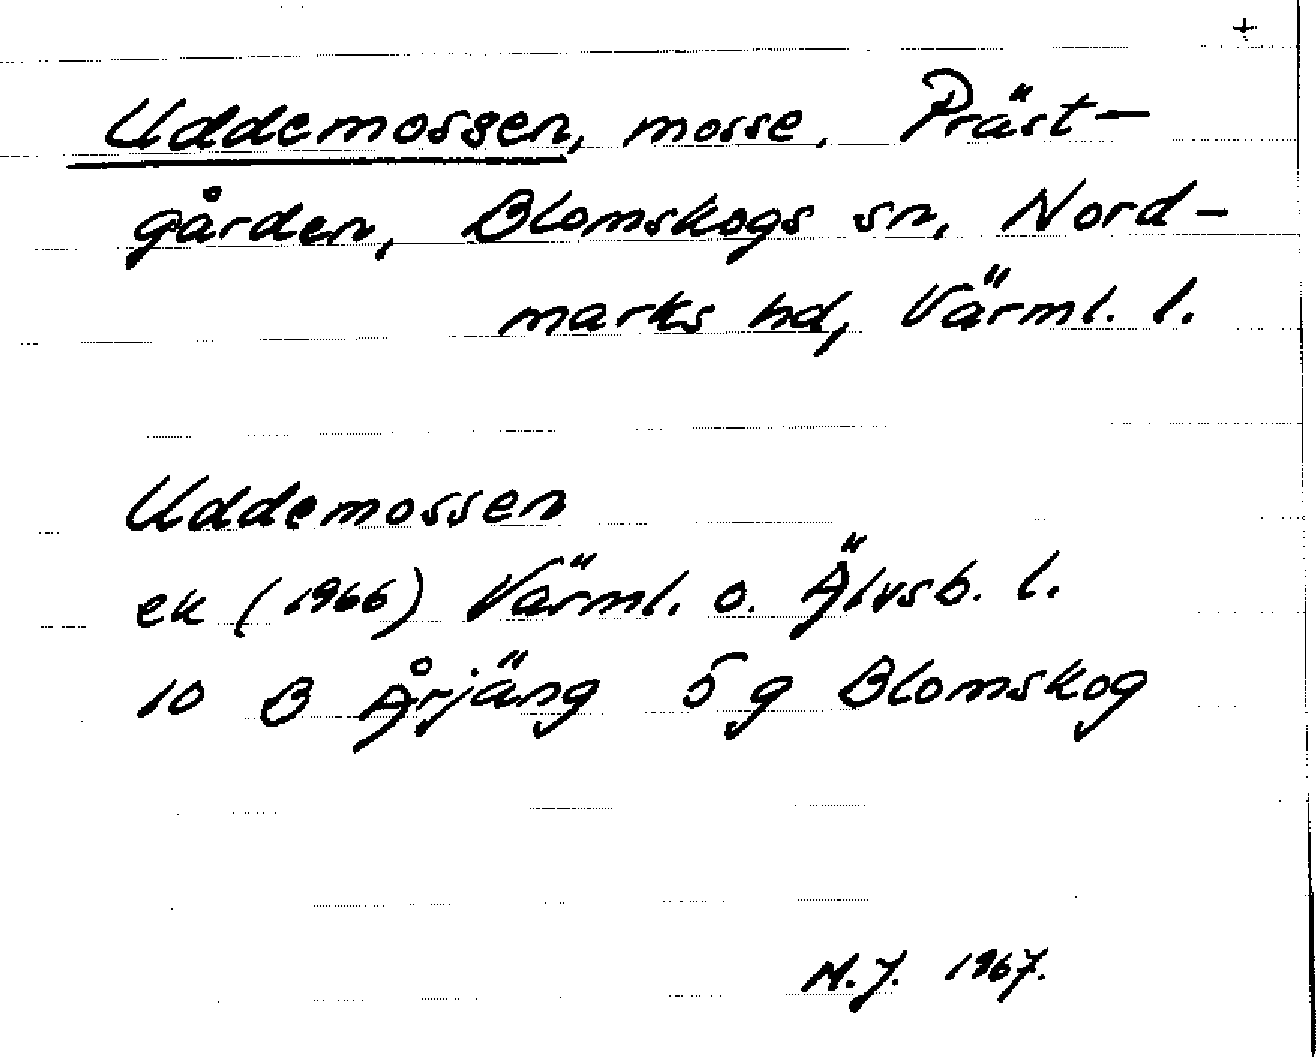 +
Uddemossen, mosse, Präst-
gården, Blomskogs sn, Nord-
marks hd, Värml. l.
Uddemossen
ek (1966) Värml. o. Älvsb. l.
10 B Årjäng 5 g Blomskog
N.J. 1967.